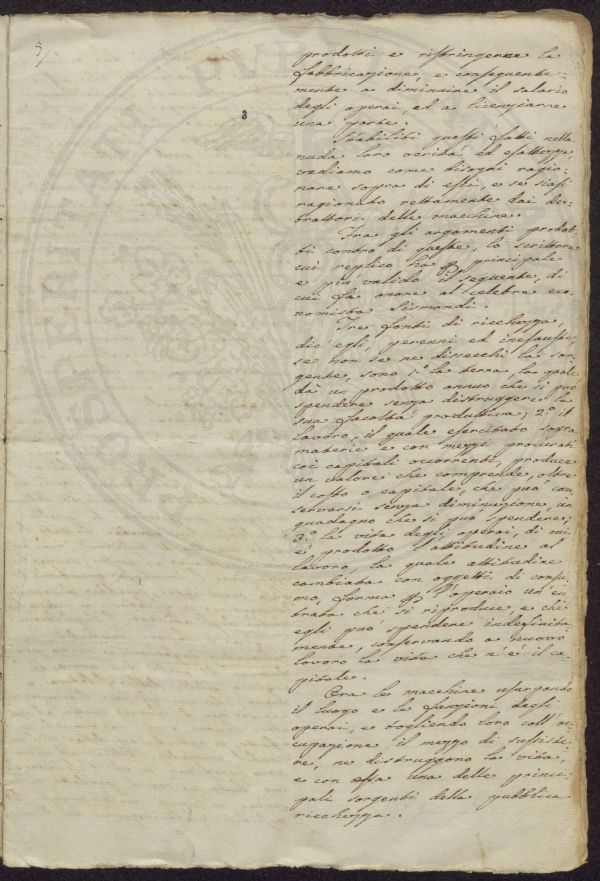 5/
8
prodotti e ristringere la
fabbricazione, e conseguente-
mente a diminuire il salario
degli operai, ed a licenziarne
una parte.
Stabiliti questi fatti nella
nuda loro verità ed esattezza,
vediamo come bisogni ragio-
nare sopra di essi, e se siasi
ragionato rettamente dai de-
trattori delle macchine.
Tra gli argomenti prodot-
ti contro di queste, lo scrittore
cui replico ha principale
e più valido il seguente, di
cui fa onore al celebre eco-
nomista Sismondi.
Tre fonti di ricchezza,
dic'egli, perenni ed inesauste,
se non se ne dissecchi la sor-
gente, sono 1.° la terra, la quale
dà un prodotto annuo che si può
spendere senza distruggere la
sua facoltà produttiva; 2.° il
lavoro, il quale esercitato sopra
materie e con mezzi procurati
coi capitali occorrenti, produce
un valore che comprende, oltre
il costo o capitale, che può con-
servarsi senza diminuzione, un
guadagno che si può spendere;
3.° la vita degli operai, di cui
è prodotto l'attitudine al
lavoro, la quale attitudine
cambiata con oggetti di consu-
mo, forma p l'operaio un'en-
trata che si riproduce, e che
egli può spendere indefinita
mente, conservando a nuovo
lavoro la vita che n'è il ca-
pitale.
Ora le macchine usurpando
il luogo e le funzioni degli
operai, e togliendo loro coll'oc-
cupazione il mezzo di sussiste-
re, ne distruggono la vita,
e con essa una delle princi-
pali sorgenti della pubblica
ricchezza.